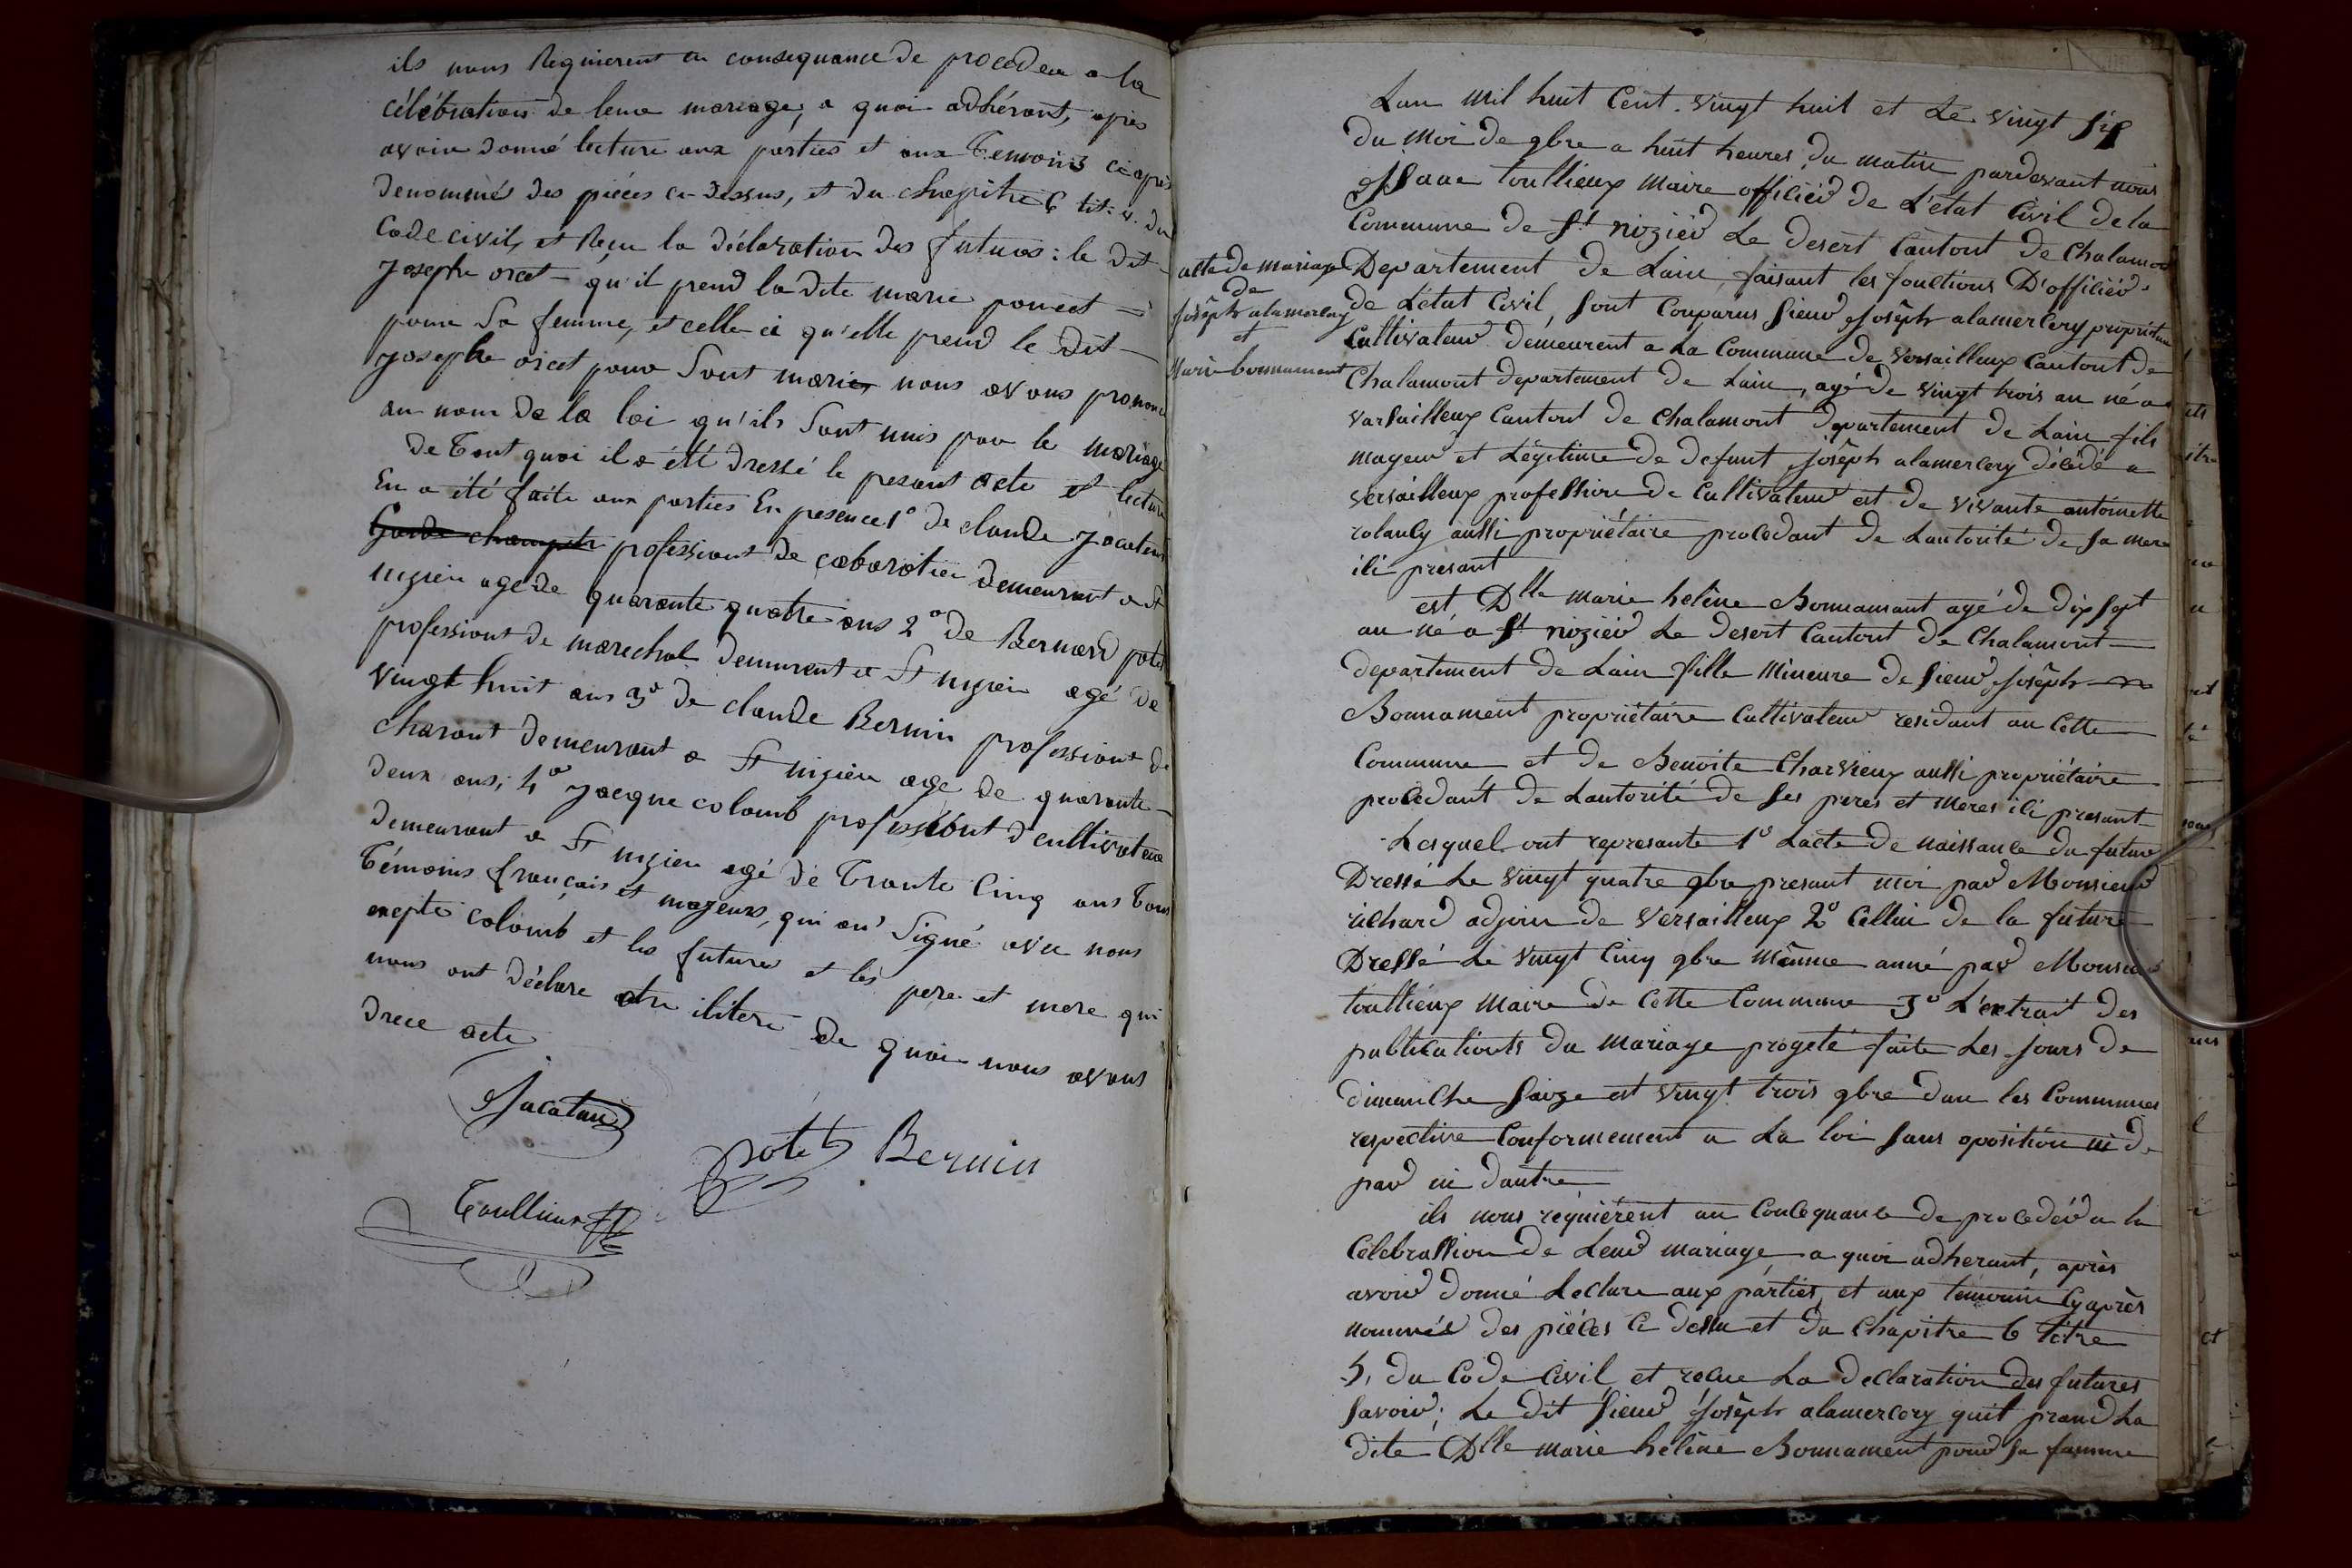 ils nous Requierent en consequance de proceder a la
célébration de leur mariage, a quoi adhérant, après
avoir donné lecture aux parties et aux Temoins ci après
denommés des piéces ci-dessus, et du chapitre 6 tit: v. du
Code civil, et Reçu la déclaration des futurs: le dit
joseph orcet qu'il prend la dite marie poncet
pour Sa femme, et celle ci qu'elle prend le dit
josephe orcet pour Sont marie, nous avons prononce
au nom de la loi qu'ils Sont unis par le mariage
de Tout quoi il a été dressé le present acte et lecture
En a été faite aux parties En presence 1° de claude jacatent
Garde champetr professiont de cabaratier demeurant a st
nizien age de quarante quatre ans 2° de Bernard potet
professiont de marechal demeurent a St nizien agé de
vingt huit ans 3° de claude Bernin professiont de
charont demeurant a St nizien age de quarante
deux ans; 4° jacque colomb professiont d cultivateur
demeurant a St nizien agé de Trante Cinq ans Tous
Témoins français et majeurs, qui on' Signé avec nous
expte colomb et les futures et les pere et mere qui
nous ont déclare etre ilitere de quoi nous avons
drece acte
Jacatan
potet Bernin
Toullieux
acte de mariage
de
josèph alamercery
et
Marie bonnamant
Lan Mil huit Cent. vingt huit et Le vingt six
du moi de 9bre a huit heures du matin pardevant nous
toullieux Maire officiéd de L'état Civil de la
Commune de St niziéd Le desert Cantont de Chalamon
Departement de Lain, faisant les fonctions D'officiéd
de L'état Civil, sont Conparus sieud Josèph alamercery propriétair
Cultivateud demeurent a La Commune de versailleux Cantont de
Chalamont departement de Lain, agé de vingt trois an né a
varsailleux Cantont de Chalamont departement de Lain fils
mageud et Légitime de defunt josèph alamercery décédé a
versailleux profession de Cultivateud et de vivante antoinette
rolandy aussi propriétaire procedant de Lautorité de sa mere
ili presant
est Dlle marie helène Bonnamant agé de dix sept
an né a St niziéd Le desert Cantont de Chalamont
departement de Lain fille Mineure de sieud josèph
Bonnament propriétaire Cultivateud residant an Cette
Commune et de Benoite Charvieux aussi propriétaire
procedant de Lautorité de ses peres et meres ili presant
Lesquel ont represante 1° Lacte de naissance du futud
Dressé Le vingt quatre 9bre presant moi pad Monsieud
richard adjoin de versailleux 2° Cellui de la future
Dressé Le vingt Cinq 9bre mênme anné pad Monsieud
toullieux maire de Cette Commune 3° L'extrait des
publicationts du mariage progeté faite Les jours de
dimanche saize est vingt trois 9bre dan les Communes
respective Conformement a La loi sans oposition ni de
pad ni dautre
ils nous réquiérent an Concequance de procedéd a la
Celebrassion de Leud mariage, a quoi adherant, après
avoid donné Lecture aux parties, et aux temoin Cy après
nommés des piéces Ci dessu et du Chapitre 6 titre
5, du Code Civil et recue La declaration des futures
savoid; Le dit sieud josèph alamercery quil prand La
dite Dlle marie hélène Bonnament poud sa famme